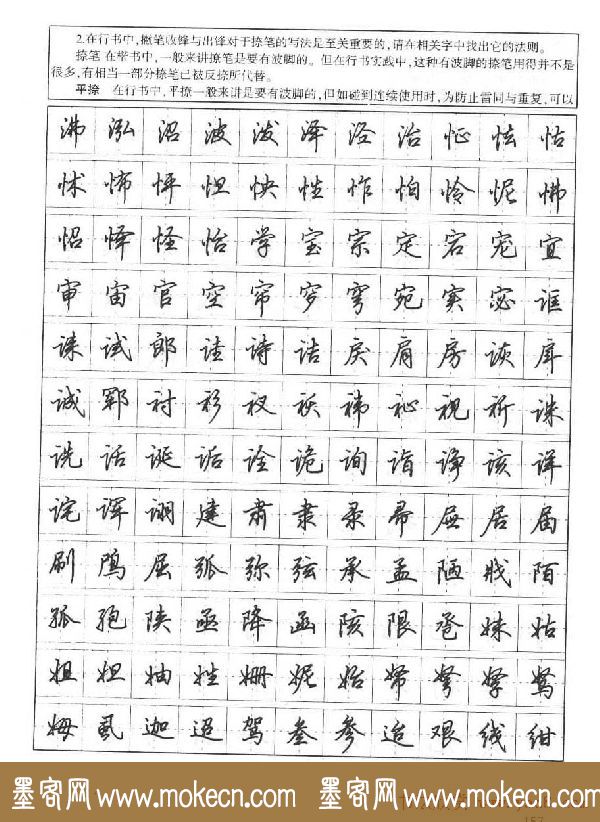 2.在行书中,撇笔收锋与出锋对于捺笔的写法是至关重要的,请在相关字中找出它的法则。
捺笔 在楷书中,一般来讲捺笔是要有波脚的。但在行书实践中,这种有波脚的捺笔用得并不是
很多,有相当一部分捺笔已被反捺所代替。
平捺 在行书中,平捺一般来讲是要有波脚的,但如碰到连续使用时,为防止雷同与重复,可以
沸 泓 沼 波 泼 泽 泾 治 怔 怯 怙
怵 怖 怦 怛 怏 性 怍 怕 怜 怩 怫
怊 怿 怪 怡 学 宝 宗 定 宕 宠 宜
审 宙 官 空 帘 穸 穹 宛 实 宓 诓
诔 试 郎 诖 诗 诘 戾 肩 房 诙 戽
诚 郓 衬 衫 衩 祆 祎 祉 视 祈 诛
诜 话 诞 诟 诠 诡 询 诣 诤 该 详
诧 诨 诩 建 肃 隶 录 帚 屉 居 届
刷 鸤 屈 弧 弥 弦 承 孟 陋 戕 陌
孤 孢 陕 亟 降 函 陔 限 卺 妹 姑
姐 妲 妯 姓 姗 妮 始 帑 弩 孥 驽
姆 虱 迦 迢 驾 叁 参 迨 艰 线 绀
墨客网 www.mokecn.com 墨客网 www.mokecn.com
157